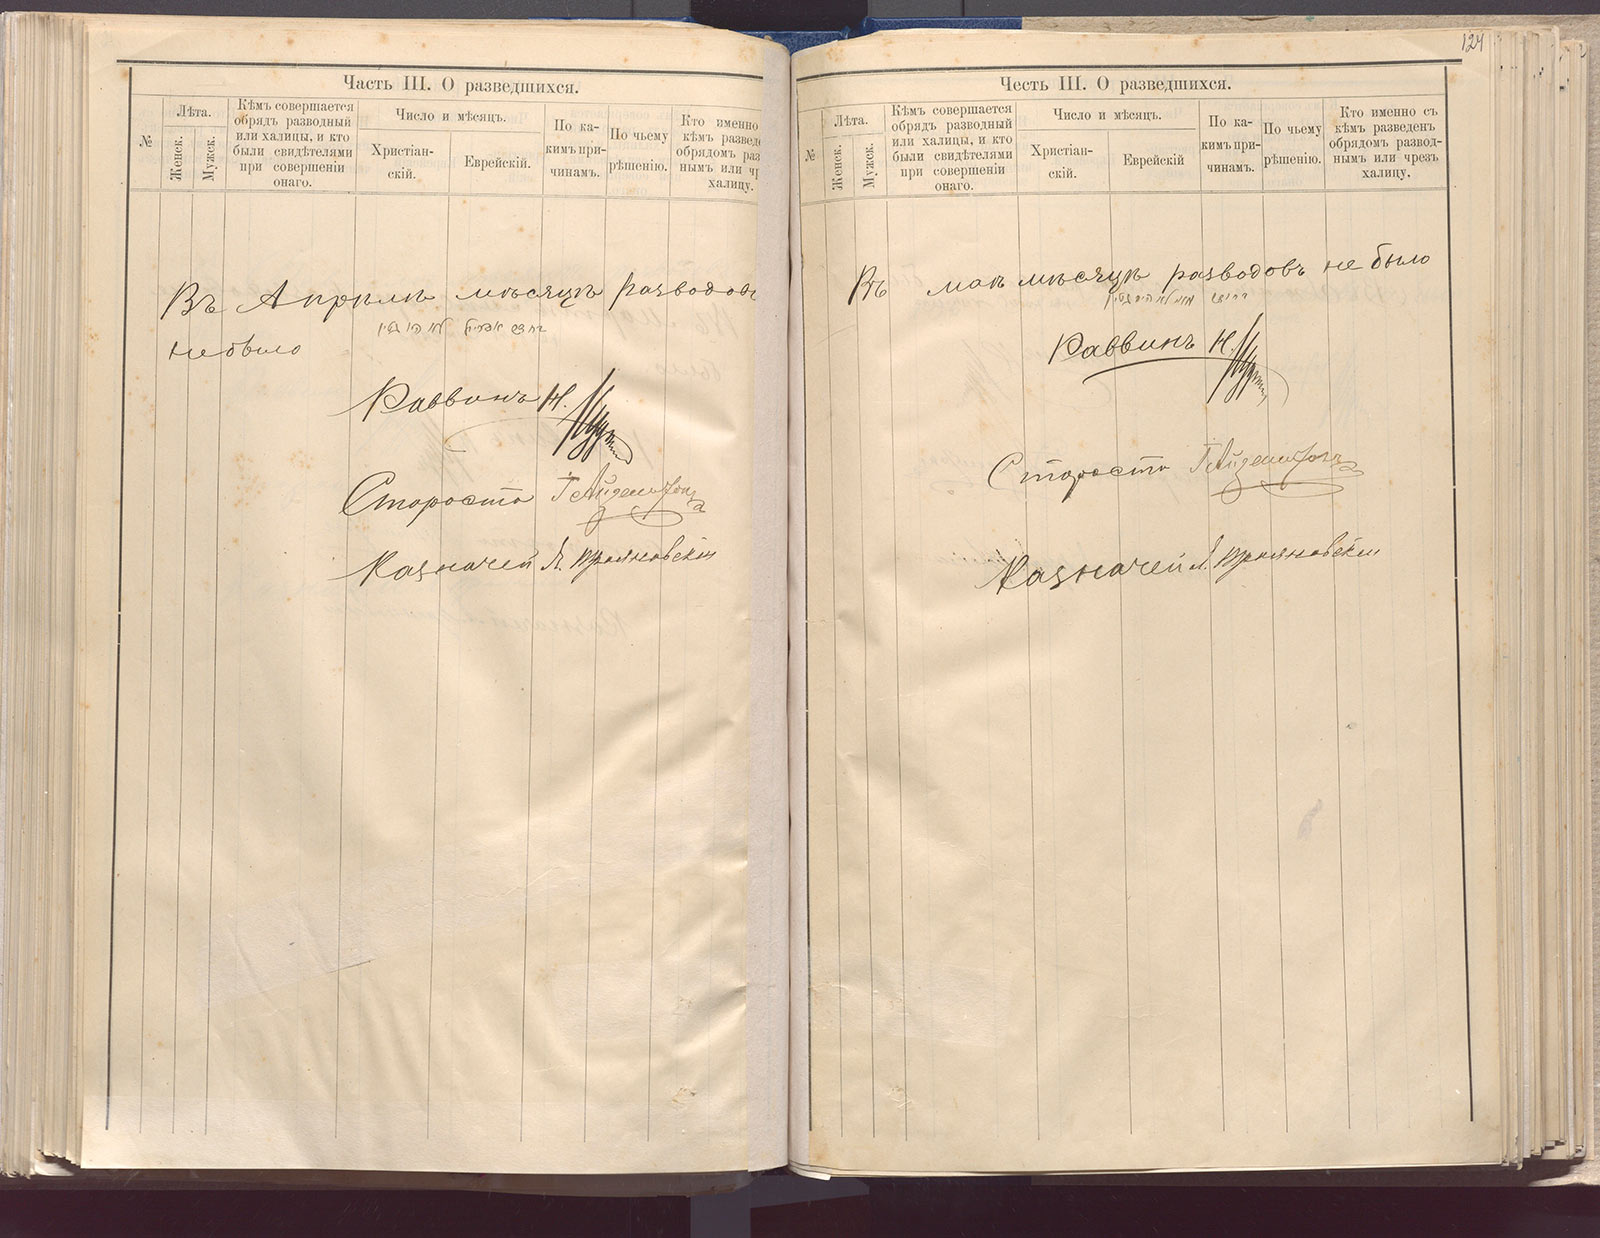 Часть III. О разведшихся.
№
Лѣта.
Женск.
Мужск.
Кѣмъ совершается
обрядъ разводный
или халицы, и кто
были свидѣтелями
при совершеніи
онаго.
Число и мѣсяцъ.
Христіан-
скій.
Еврейскій.
По ка-
кимъ при-
чинамъ.
По чьему
рѣшенію.
Кто именно
кѣмъ разведе
обрядомъ раз
нымъ или чр
халицу.
Въ Апрѣлѣ мѣсяцѣ разводовъ
не было
Раввинъ Н.
Староста
Казначей Я. Трояновскій
124
Честь III. О разведшихся.
№
Лѣта.
Женск.
Мужск.
Кѣмъ совершается
обрядъ разводный
или халицы, и кто
были свидѣтелями
при совершеніи
онаго.
Число и мѣсяцъ.
Христіан-
скій.
Еврейскій
По ка-
кимъ при-
чинамъ.
По чьему
рѣшенію.
Кто именно съ
кѣмъ разведенъ
обрядомъ развод-
нымъ или чрезъ
халицу.
Въ маѣ мѣсяцѣ разводовъ не было
Раввинъ Н.
Староста
Казначей Я. Трояновскій